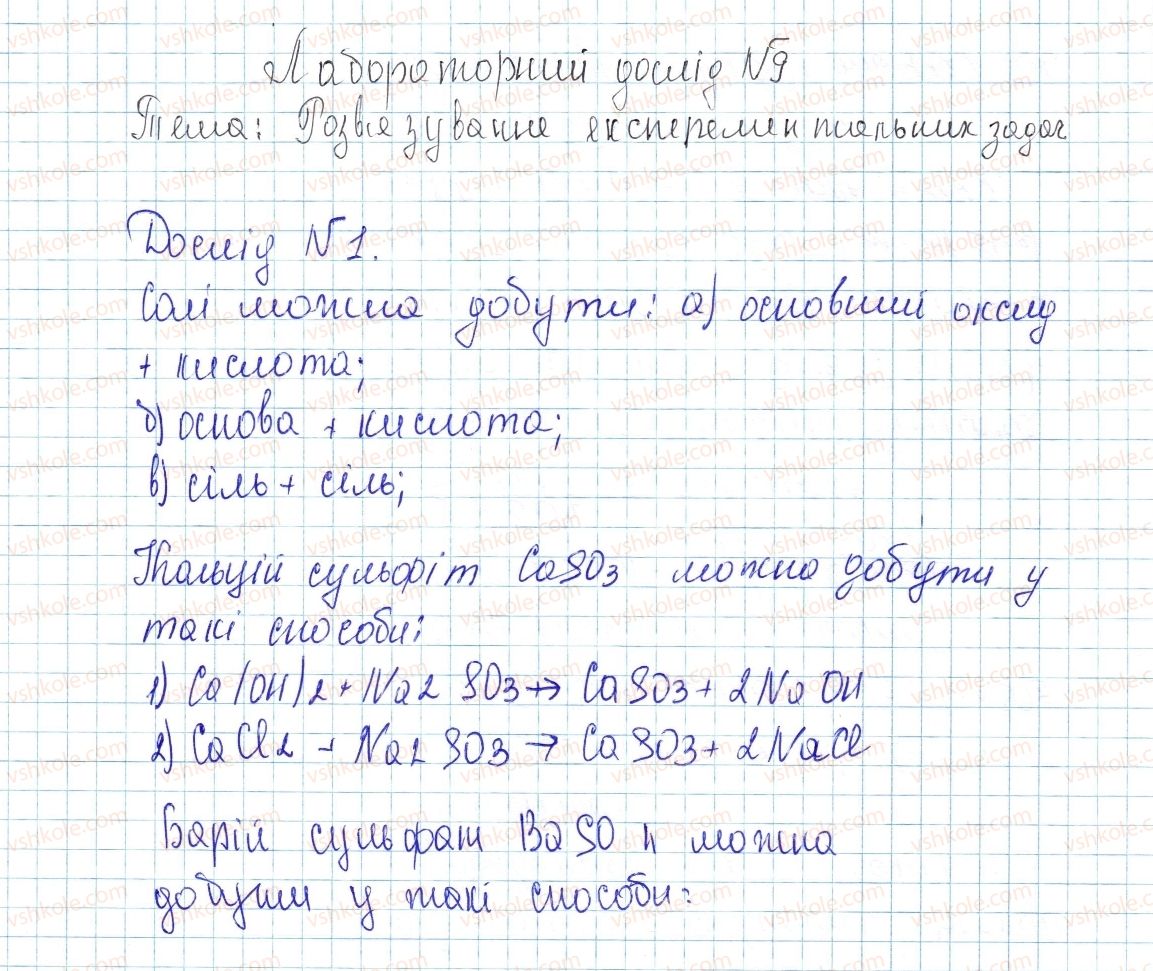 Лабораторний дослід №9
Тема: Розвязування експерементальних задач
Дослід №1.
Солі можна добути: а) основний оксид
+ кислота;
б) основа + кислота;
в) сіль + сіль;
Кальцій сульфіт CaSO3 можна добути у
такі способи:
1) Ca(OH)2 + Na2SO3 → CaSO3 + 2NaOH
2) CaCl2 + Na2SO3 → CaSO3 + 2NaCl
Барій сульфат BaSO4 можна
добути у такі способи: